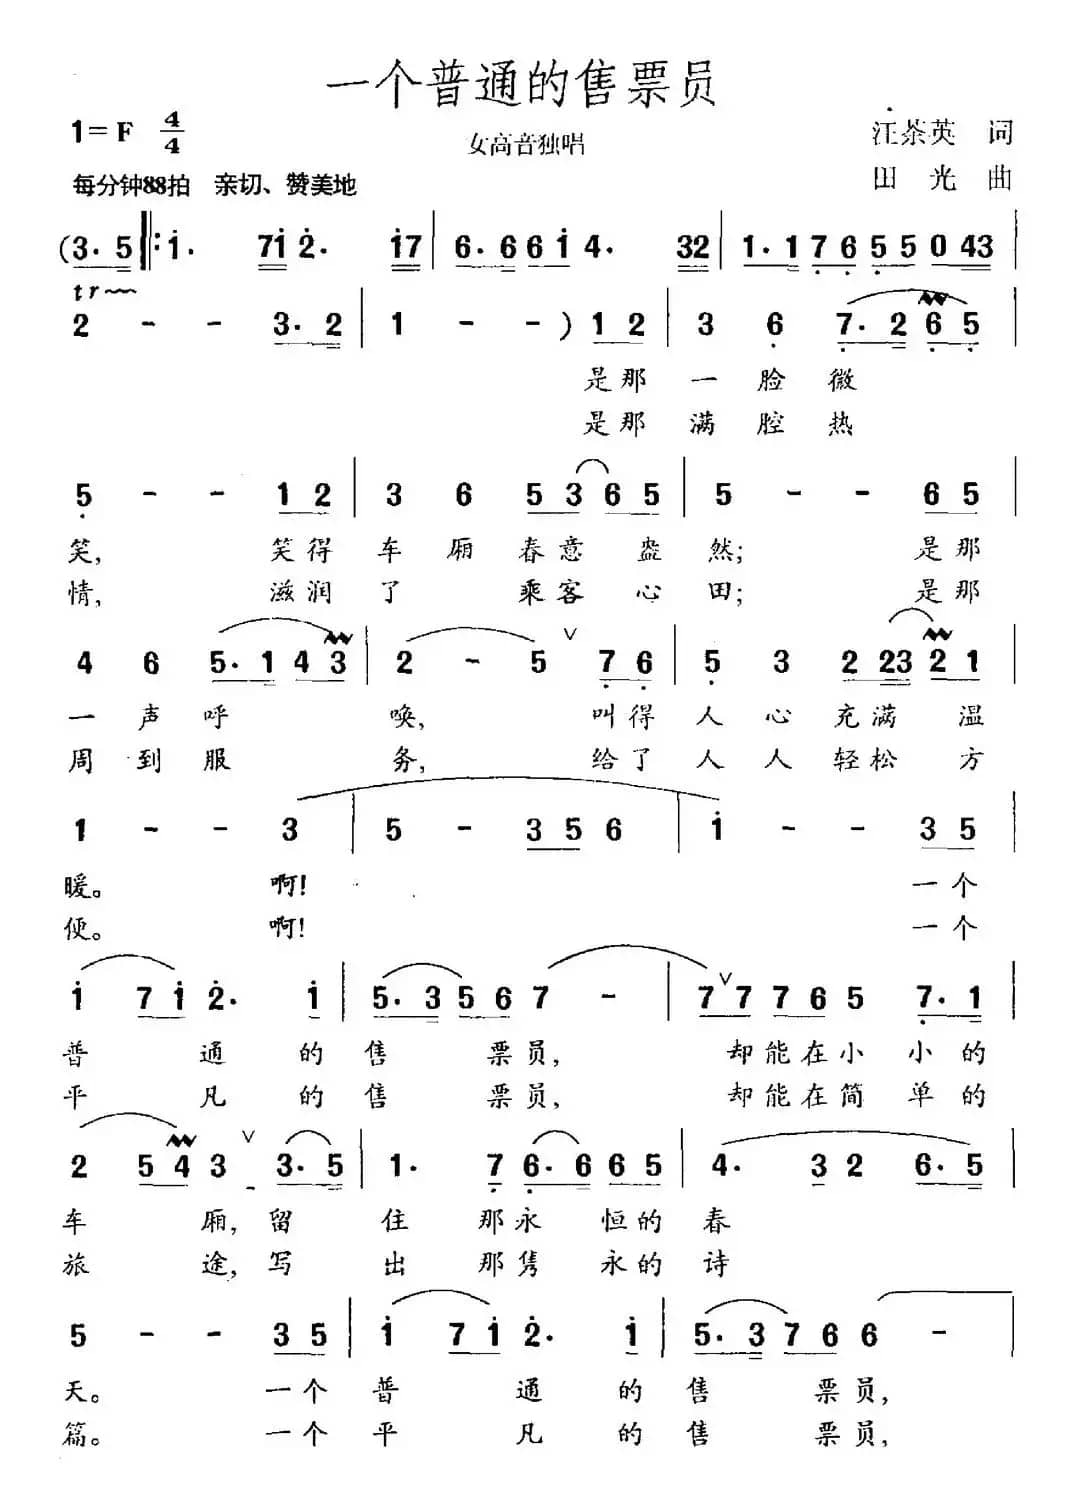 一个普通的售票员
1=F 4/4
女高音独唱
汪荼英 词
田光 曲
每分钟88拍 亲切、赞美地
(3. 5 ‖: i. 7i 2. i7 | 6. 6 6 i 4. 32 | 1. 1 7 6 5 5 0 43 |
tr~~
2 - - 3. 2 | 1 - - ) 1 2 | 3 6 7. 2 6 5 |
是那 一 脸 微
是那 满 腔 热
5 - - 1 2 | 3 6 5 3 6 5 | 5 - - 6 5 |
笑, 笑得 车 厢 春意 盎 然; 是那
情, 滋润 了 乘客 心 田; 是那
4 6 5. 1 4 3 | 2 - 5 ∨ 7 6 | 5 3 2 23 2 1 |
一 声 呼 唤, 叫得 人 心 充满 温
周 到 服 务, 给了 人 人 轻松 方
1 - - 3 | 5 - 3 5 6 | i - - 3 5 |
暖。 啊! 一个
便。 啊! 一个
i 7 i 2. i | 5. 3 5 6 7 - | 7 ∨ 7 7 6 5 7. 1 |
普 通 的 售 票员, 却能在小 小的
平 凡 的 售 票员, 却能在简 单的
2 5 4 3 ∨ 3. 5 | 1. 7 6. 6 6 5 | 4. 3 2 6. 5 |
车 厢, 留 住 那永 恒的 春
旅 途, 写 出 那隽 永的 诗
5 - - 3 5 | i 7 i 2. i | 5. 3 7 6 6 - |
天。 一个 普 通 的 售 票员,
篇。 一个 平 凡 的 售 票员,